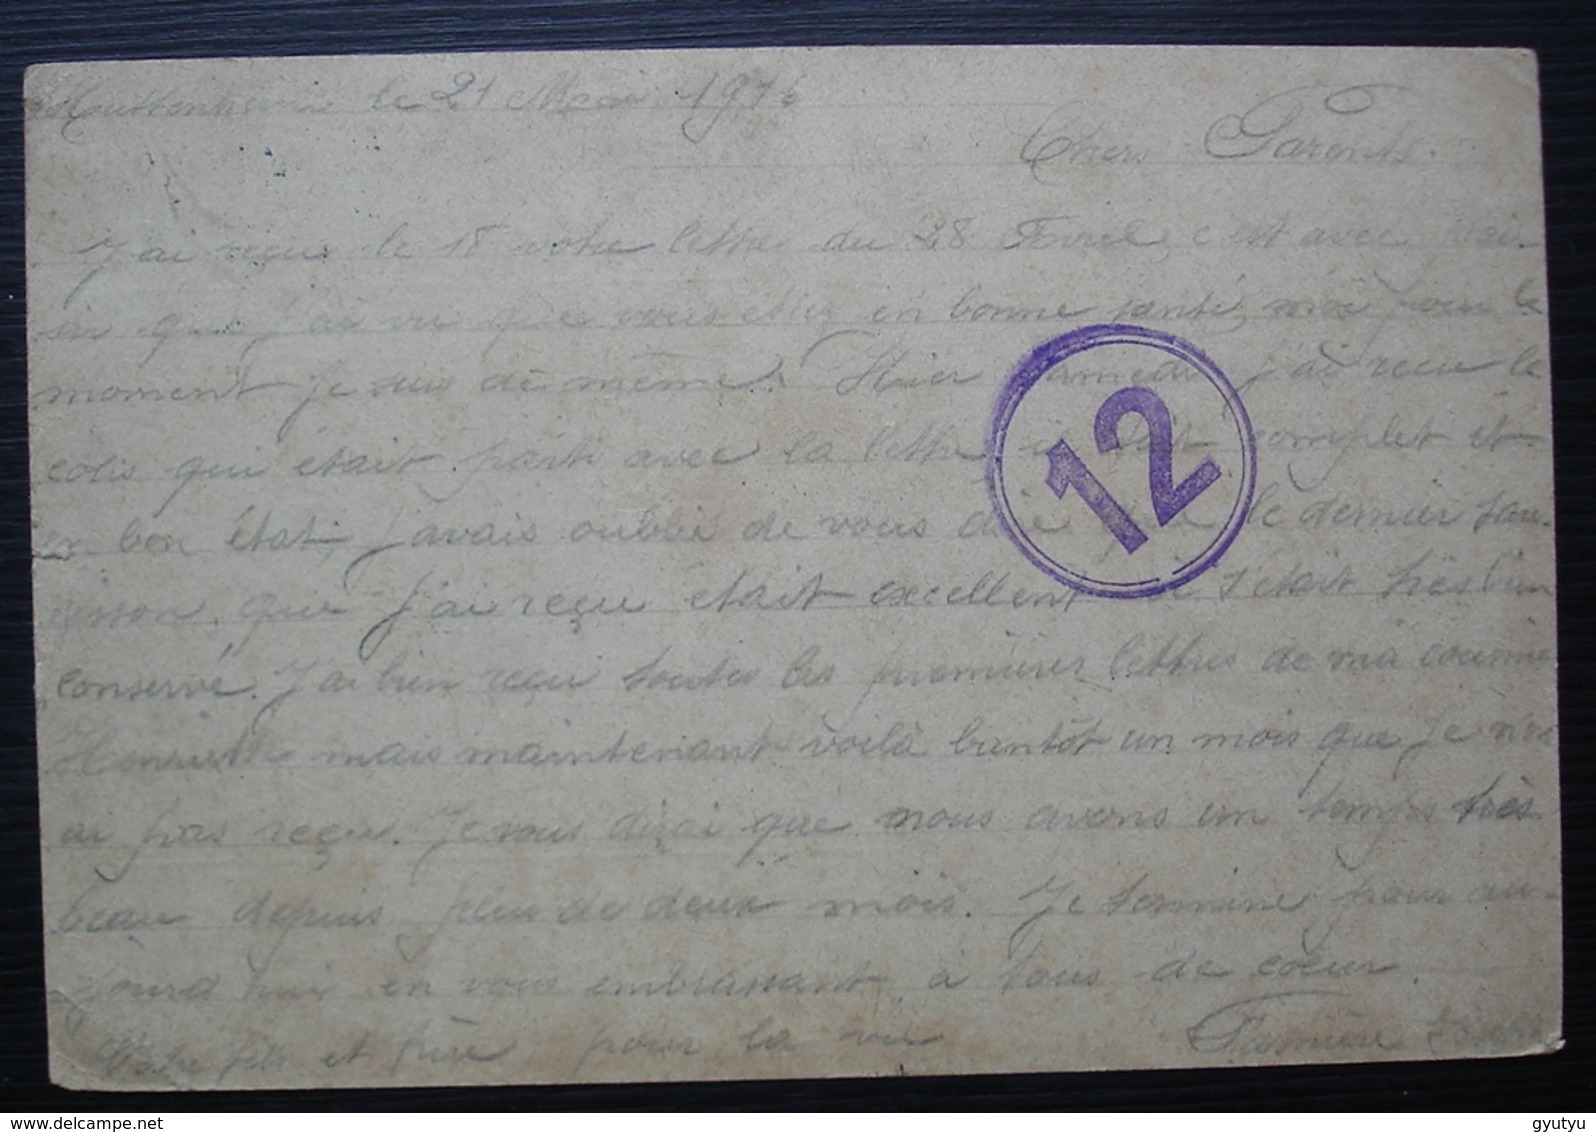 le 21 Mai 1916
Chers Parents.
J'ai reçu le 18 votre lettre du 28 Avril, c'est avec plai-
sir que j'ai vu que vous étiez en bonne santé, moi pour le
moment je suis de même. Hier samedi j'ai reçu le
colis qui était parti avec la lettre il était complet et
en bon état, j'avais oublié de vous dire que le dernier sau-
cisson que j'ai reçu était excellent il s'était très bien
conservé. J'ai bien reçu toutes les premières lettres de ma cousine
Henriette mais maintenant voilà bientôt un mois que je n'en
ai pas reçu. Je vous dirai que nous avons un temps très
beau depuis plus de deux mois. Je termine pour au-
jourd'hui en vous embrassant à tous de cœur.
Votre fils et frère pour la vie
12
www.delcampe.net
gyutyu